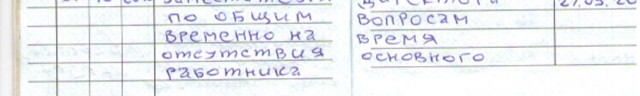 по общим
временно на
отсутствия
работника
вопросам
время
основного